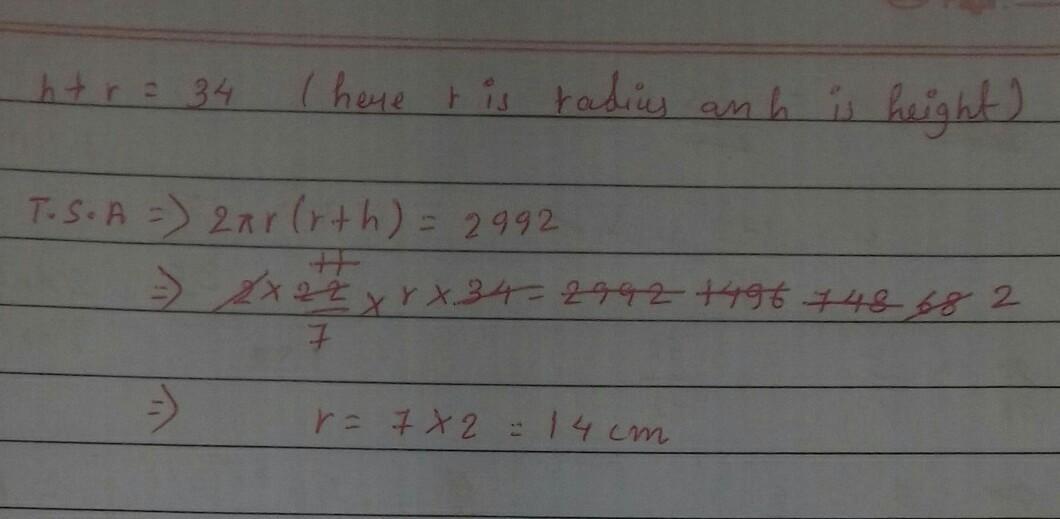 h + r = 34 (here r is radius an h is height)
T.S.A => 2πr(r+h) = 2992
11
=> 2 x 22 x r x 34 = 2992 1496 748 68 2
7
=> r = 7 x 2 = 14 cm